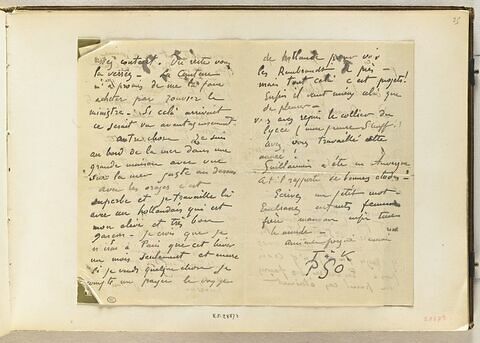 25
très content. Du reste vous
la verrez - La Centaure
m'a promis de me faire
acheter par Rouvier le
ministre. Si cela arrivait
ce serait un avantageusement.
autre chose. Je suis
au bord de la mer dans une
grande maison avec vue
sur la mer juste au dessus
avec les orages c'est
superbe et je travaille là
avec un hollandais qui est
mon élève et très bon
garçon. Je crois que je
n'irai à Paris que cet hiver
un mois seulement et encore
si je vends quelque chose. Je
compte me payer le voyage
de hollande pour voir
les Rembrandt de près -
mais tout cela c'est projets!
Enfin il vaut mieux cela que
de pleurer -
Vous avez repris le collier du
lycée ( mon pauvre Schuff.!
avez vous travaillé cette
année.
Guillaumin a été en Auvergne
A-t-il rapporté de bonnes études -
Ecrivez un petit mot -
Embrassez enfants femme
frère maman enfin tous
le monde -
amitiés
PGO
R.F. 28877
28877